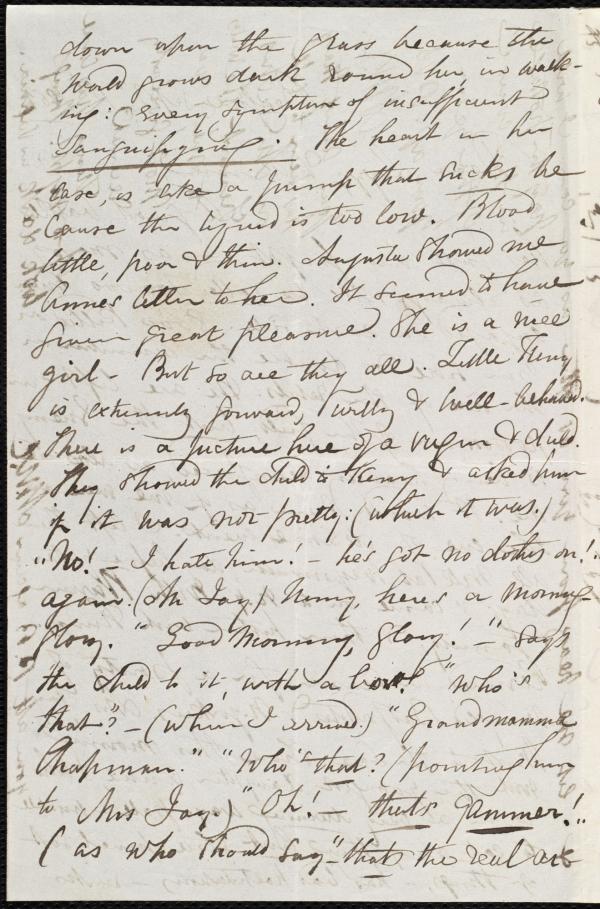 down upon the grass because the
world grows dark round her, in walk-
ing: (every symptom of insufficient
Sanguifying. The heart in her
case, is like a pump that sucks be
cause the liquid is too low. Blood
little, poor & thin. Augusta showed me
Annes letter to her. It seemed to have
given great pleasure. She is a nice
girl - But so are they all. Little Henry
is extremely forward, witty & well-behaved.
There is a picture here of a virgin & child.
They showed the child to Henry & asked him
if it was not pretty: (which it was.)
"No! - I hate him! - he's got no clothes on!
again. (Mr Jay) Henry, here's a morning-
glory. "Good Morning, glory! -" says
the child to it, with a bow! "Who's
that? - (when I arrived.) "Grandmamma
Chapman." "Who's that? (pointing him
to Mrs Jay.) "Oh! - thats Gammer!..
(as who should say "thats the real